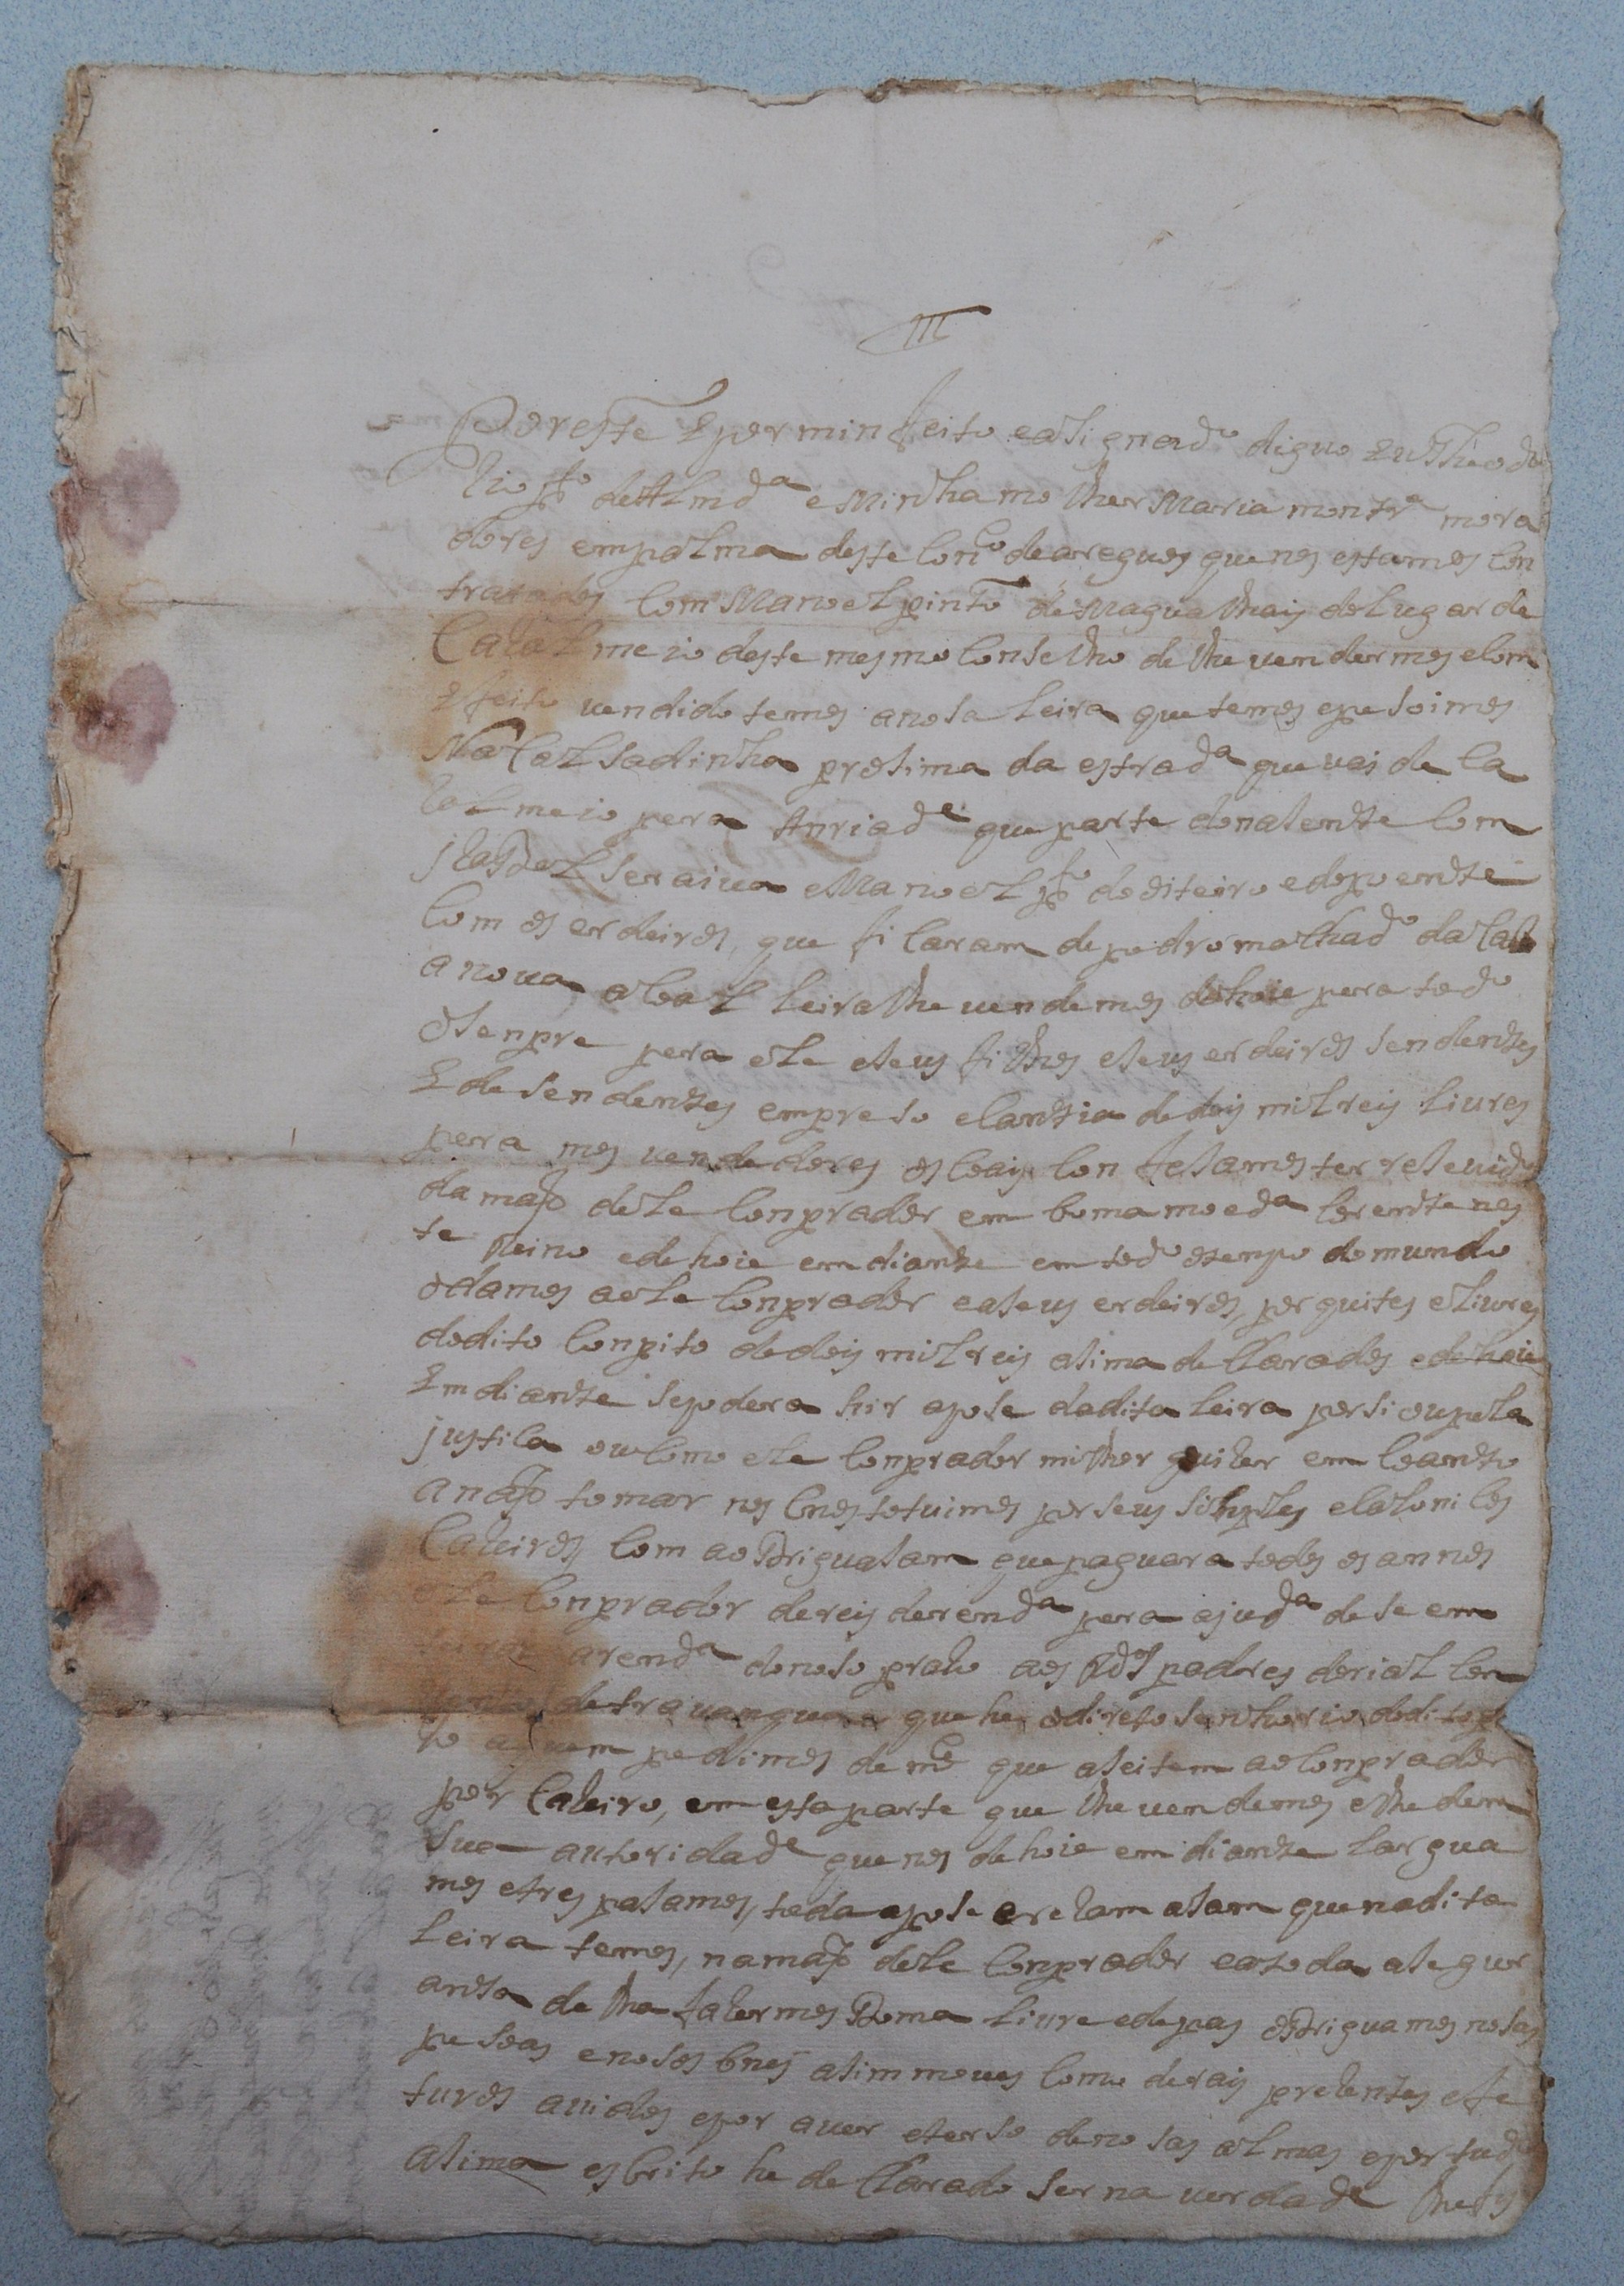 Por este e por min feito e asignado diguo eu Theodo
zio pto de Almda e Minha molher Maria montra mora
dores em palma deste Conco de areguos que nos estamos Con
tratados Com Manoel pinto de Magualhais do lugar de
Cazalmeio deste mesmo Conselho de lhe vendermos e Com
efeito vendido temos a nosa leira que temos e posoimos
Na Calsadinha prosima da estrada que vai de Ca
zalmeio pera Anriade que parte do nasente Com
Izabel seraiva e Manoel pto do oiteiro e do poente
Com os erdeiros, que fiCaram de pedro machado da Caza
a nova a Coal leira lhe vendemos de hoie pera todo
o senpre pera ele e seus filhos e seus erdeiros sendentes
E desendentes em preso e Cantia de dois mil reis livres
pera nos vendedores os Coais Confesamos ter resevido
da mão dele Conprador em boma moeda Corente nes
te Reino e de hoie em diante em todo o tenpo do mundo
o damos a ele Conprador e a seus erdeiros, por quites e livres
do dito Conpito de dois mil reis asima deClarados e de hoie
Em diante se podera hir a pose da dita leira por si ou pela
justisa ou Como ele Conprador milhor quizer em Coanto
a não tomar nos Cnostetuimos por seus sinples Colonicos
Cazeiros, Com a obriguasam que paguara todos os annos
ele Conprador de reis de renda pera ajuda de se em
teirar a renda do noso prazo aos Rdos padres do rial Con
vento de travanqua que he o direto senhorio do dito pra
zo a quem pedimos de mce que aseitem ao Conprador
por Cazeiro, em esta parte que lhe vendemos e lhe dem
sua autoridade que nos de hoie em diante largua
mos e trespasamos, toda a pose e reClamasam que na dita
leira temos, na mão dele Conprador e a toda a segur
ansa de lha fazermos Boma livre e de pas obriguamos nosas
pesoas e nosos bnes asim moves Como de rais prezentes e fu
turos avidos e por aver e terso de nosas almas e por tudo
asima esCrito he deClarado ser na verdade lhe fis